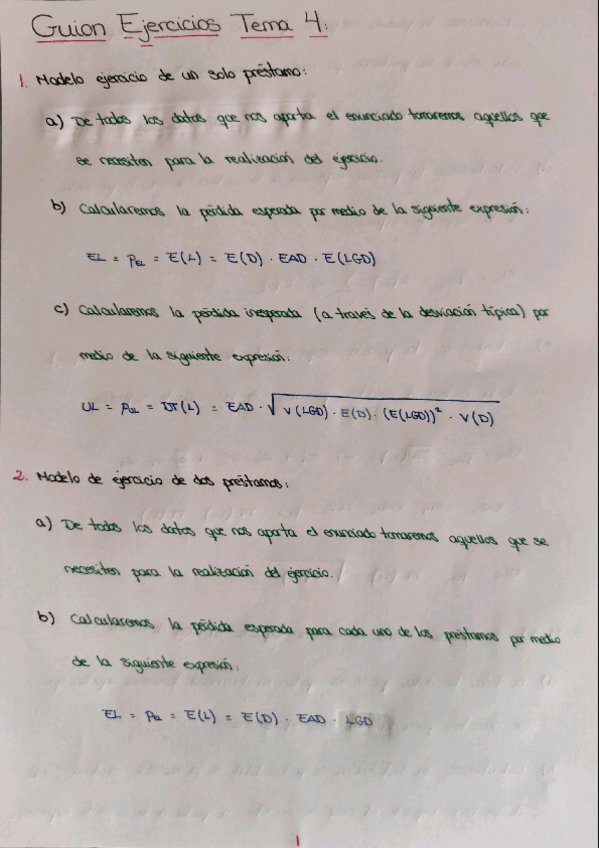 Guion Ejercicios Tema 4:
1. Modelo ejercicio de un solo préstamo:
a) De todos los datos que nos aporta el enunciado tomaremos aquellos que
se necesiten para la realización del ejercicio.
b) Calcularemos la pérdida esperada por medio de la siguiente expresión:
EL = PEL = E(L) = E(D) · EAD · E(LGD)
c) Calcularemos la pérdida inesperada (a través de la desviación típica) por
medio de la siguiente expresión:
UL = PUL = DT(L) = EAD · √V(LGD) · E(D) · (E(LGD))² · V(D)
2. Modelo de ejercicio de dos préstamos:
a) De todos los datos que nos aporta el enunciado tomaremos aquellos que se
necesiten para la realización del ejercicio.
b) Calcularemos la pérdida esperada para cada uno de los préstamos por medio
de la siguiente expresión:
EL = PEL = E(L) = E(D) · EAD · LGD
1